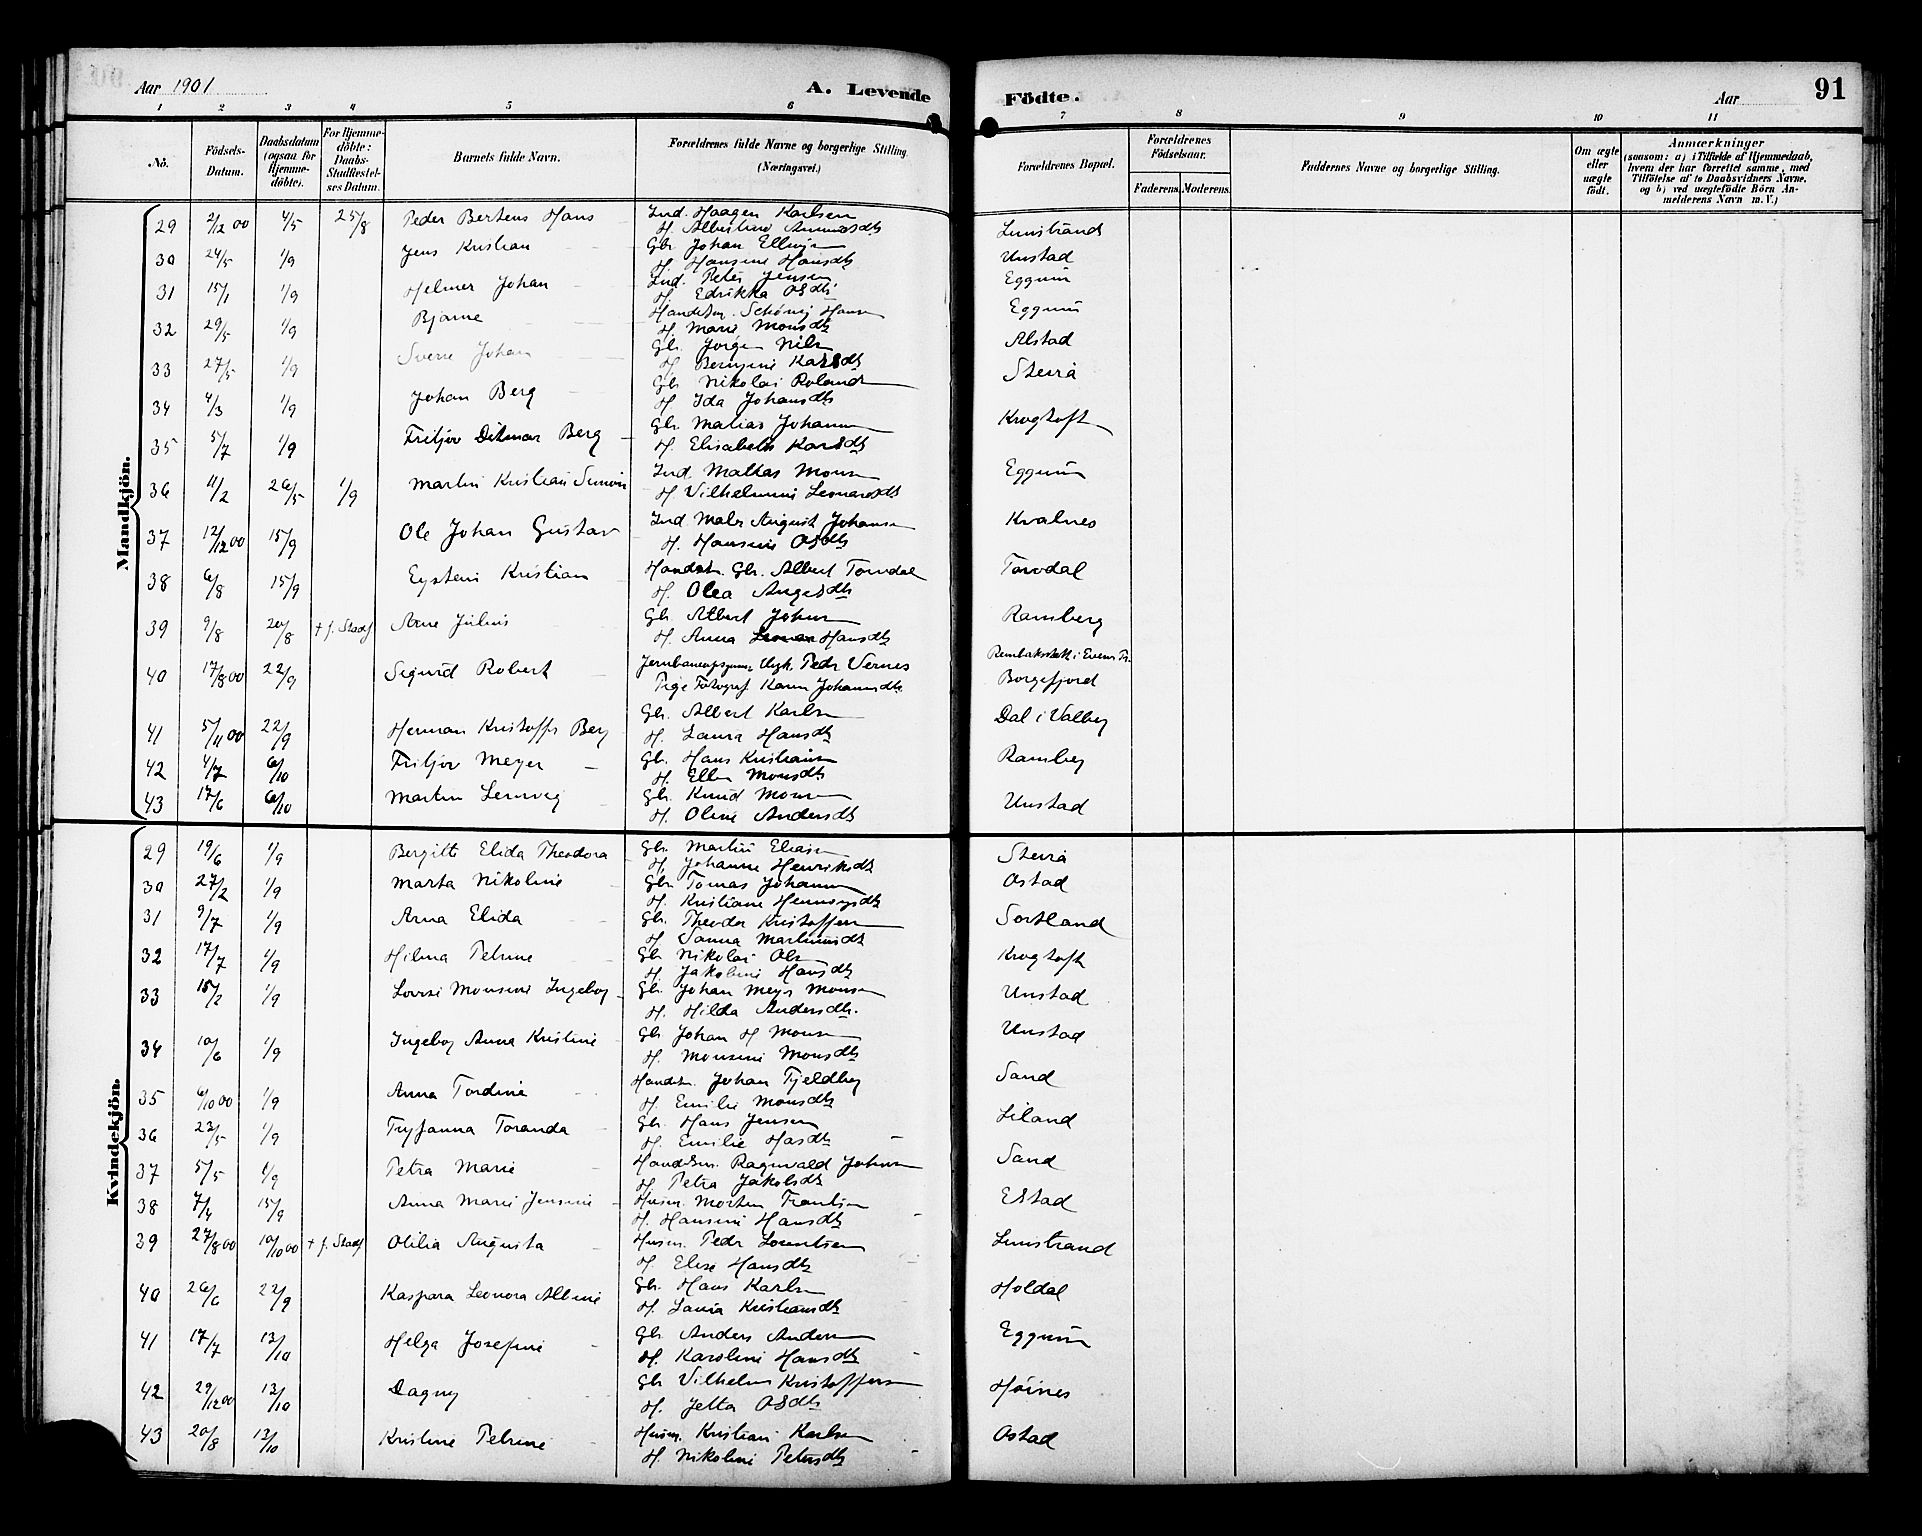 Aar 1901
A. Levende
Födte.
Aar
91
1 2 3 4 5 6 7 8 9 10 11
No.
Födsels-Datum.
Daabsdatum (ogsaa for Hjemme-döbte).
For Hjemme-döbte: Daabs-Stadfæstel-ses Datum.
Barnets fulde Navn.
Forældrenes fulde Navne og borgerlige Stilling. (Næringsvei.)
Forældrenes Bopæl.
Forældrenes Födselsaar.
Faderens. Moderens.
Faddernes Navne og borgerlige Stilling.
Om ægte eller uægte födt.
Anmærkninger
(saasom: a) i Tilfælde af Hjemmedaab, hvem der har forrettet samme, med Tilföielse af to Daabsvidners Navne, og b) ved uægtefödte Börn An-melderens Navn m. V.)
Mandkjön.
29 2/12 00 4/5 25/8 Peder Bertens Hans Ind. Haagen Karlsen
H. Albertine Amundsdtr Lunstrand
30 24/5 1/9 Jens Kristian Gbr Johan Ellings
H. Hansine Hansdtr Unstad
31 15/1 1/9 Helmer Johan Ind. Peter Jensen
H. Edrikka Olsdtr Eggum
32 29/5 1/9 Bjarne Handelsm. Schönig Hansen
H. Marie Monsdtr Eggum
33 27/5 1/9 Sverre Johan Gbr. Jörgen Nils
H. Bergine Karlsdtr Alstad
34 4/3 1/9 Johan Berg Gbr Nikolai Roland
H. Ida Johansdtr Steira
35 5/7 1/9 Fritjov Ditmar Berg Gbr. Matias Johansen
H. Elisabeth Karlsdtr Krogtoft
36 11/2 26/5 1/9 Martin Kristian Simon Ind. Matias Monsen
H. Vilhelmine Leonardsdtr Eggum
37 12/12 00 15/9 Ole Johan Gustav Ind. Maler August Johansen
H. Hansine Olsdtr Kvalnes
38 6/8 15/9 Eystein Kristian Handelsm. Gbr. Albert Torvdal
H. Olea Angelsdtr Torvdal
39 9/8 20/8 + f. Stadf. Arne Julius Gbr. Albert Johns
H. Anna Hansdtr Ramberg
40 17/8 00 22/9 Sigurd Robert Ungk. Peder Vernes
Pige Fotograf Karen Johannsdtr. Borgefjord
41 5/11 00 22/9 Herman Kristoffer Berg Gbr. Albert Karlsen
H. Laura Hansdtr Dal i Valberg
42 4/7 6/10 Fritjov Meyer Gbr. Hans Kristiansen
H. Ellen Monsdtr Ramberg
43 17/6 6/10 Martin Lernveg Gbr. Knud Monsen
H. Oline Andersdtr Unstad
Kvindekjön.
29 19/6 1/9 Bergitte Elida Theodora Gbr. Martin Eliasen
H. Johanne Henriksdtr Steira
30 27/2 1/9 Marta Nikoline Gbr. Tomas Johannsen
H. Kristiane Henningsdtr Ostad
31 9/7 1/9 Arna Elida Gbr. Theodor Kristoffersen
H. Sanna Martinusdtr Sortland
32 17/7 1/9 Hilma Petrine Gbr. Nikolai Olsen
H. Jakobine Hansdtr Krogtoft
33 15/2 1/9 Lovise Monsine Ingeborg Gbr. Johan Meyer Monsen
H. Hilda Andersdtr. Unstad
34 10/6 1/9 Ingeborg Anna Kristine Gbr Johan H Monsen
H. Monsine Monsdtr Unstad
35 6/10 00 1/9 Anna Tordine Handelsm. Johan Fjeldberg
H. Emilie Monsdtr Sand
36 22/5 1/9 Tryfanna Toranda Gbr. Hans Jensen
H. Emilie Hansdtr Liland
37 5/5 1/9 Petra Marie Handelsm. Ragnvald Johnsen
H. Petra Jakobsdtr Sand
38 7/4 15/9 Anna Marie Jensine Husm. Morten Frantsen
H. Hansine Hansdtr Elstad
39 27/8 00 10/10 00 + f. Stadf. Otilia Augusta Husm. Peder Lorentsen
H. Elise Hansdtr Lunstrand
40 26/6 22/9 Kaspara Leonora Albine Gbr. Hans Karlsen
H. Laura Kristiansdtr Holdal
41 17/7 13/10 Helga Josefine Gbr Anders Andersen
H. Karoline Hansdtr Eggum
42 29/12 00 13/10 Dagny Gbr Vilhelm Kristoffersen
H. Jetta Olsdtr Höines
43 20/8 13/10 Kristine Petrine Husm. Kristian Karlsen
H. Nikoline Petersdtr Ostad